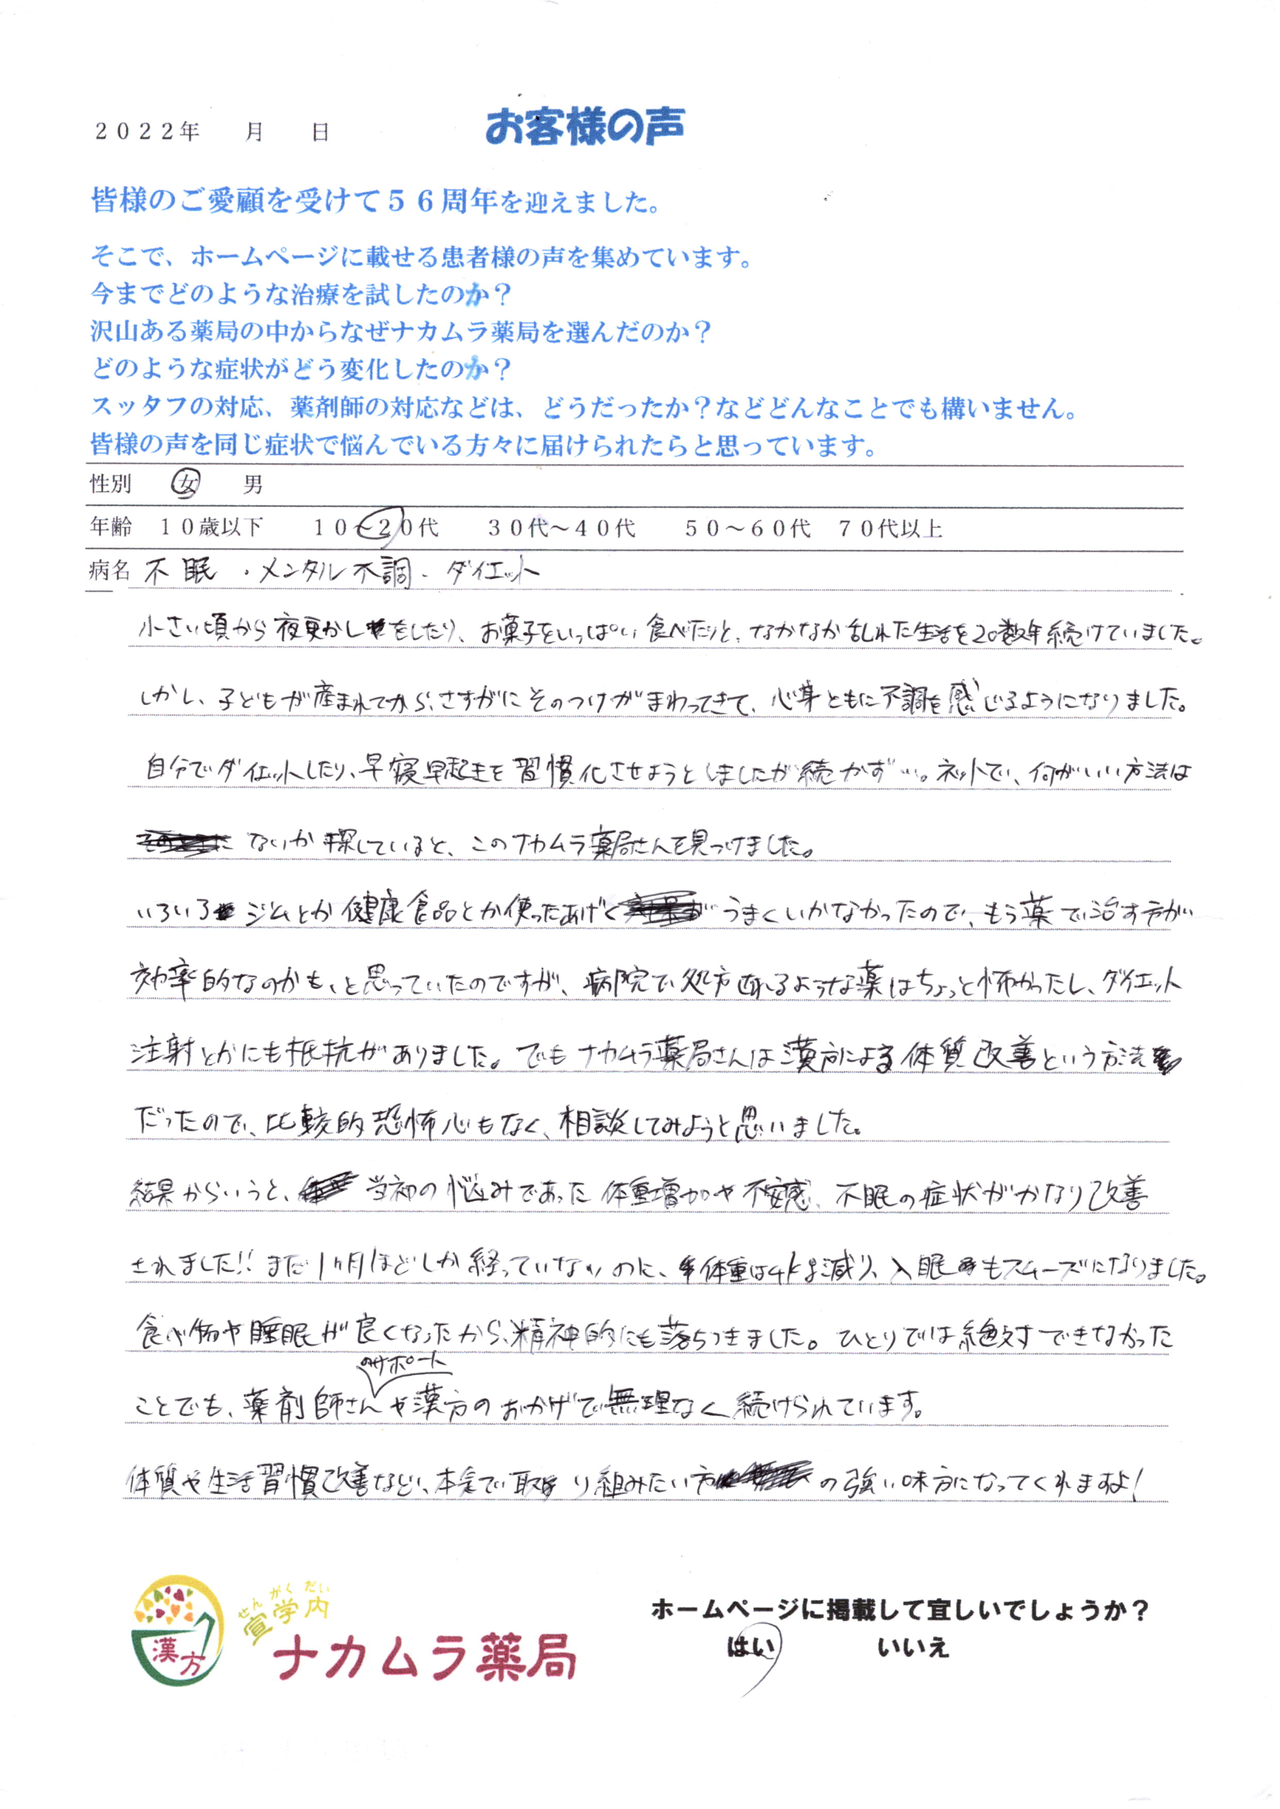 2022年　　月　　日
お客様の声
皆様のご愛顧を受けて56周年を迎えました。
そこで、ホームページに載せる患者様の声を集めています。
今までどのような治療を試したのか？
沢山ある薬局の中からなぜナカムラ薬局を選んだのか？
どのような症状がどう変化したのか？
スッタフの対応、薬剤師の対応などは、どうだったか？などどんなことでも構いません。
皆様の声を同じ症状で悩んでいる方々に届けられたらと思っています。
性別　女　男
年齢　10歳以下　10～20代　30代～40代　50～60代　70代以上
病名 不眠・メンタル不調・ダイエット
小さい頃から夜更かしをしたり、お菓子をいっぱい食べたりと、なかなか乱れた生活を20数年続けていました。
しかし、子どもが産まれてから、さすがにそのつけがまわってきて、心身ともに不調を感じるようになりました。
自分でダイエットしたり、早寝早起きを習慣化させようとしましたが続かず…。ネットで、何かいい方法は
ないか探していると、このナカムラ薬局さんを見つけました。
いろいろジムとか健康食品とか使ったあげくうまくいかなかったので、もう薬で治す方が
効率的なのかも、と思っていたのですが、病院で処方されるような薬はちょっと怖かったし、ダイエット
注射とかにも抵抗がありました。でもナカムラ薬局さんは漢方による体質改善という方法
だったので、比較的恐怖心もなく、相談してみようと思いました。
結果からいうと、当初の悩みであった体重増加や不安感、不眠の症状がかなり改善
されました!! まだ1ヶ月ほどしか経っていないのに、体重は4kg減り、入眠もスムーズになりました。
食べ物や睡眠が良くなったから、精神的にも落ちつきました。ひとりでは絶対できなかった
ことでも、薬剤師さんのサポートや漢方のおかげで無理なく続けられています。
体質や生活習慣改善など、本気で取り組みたい方の強い味方になってくれますよ!
漢方
せんがくだい
宣学内
ナカムラ薬局
ホームページに掲載して宜しいでしょうか？
はい　いいえ